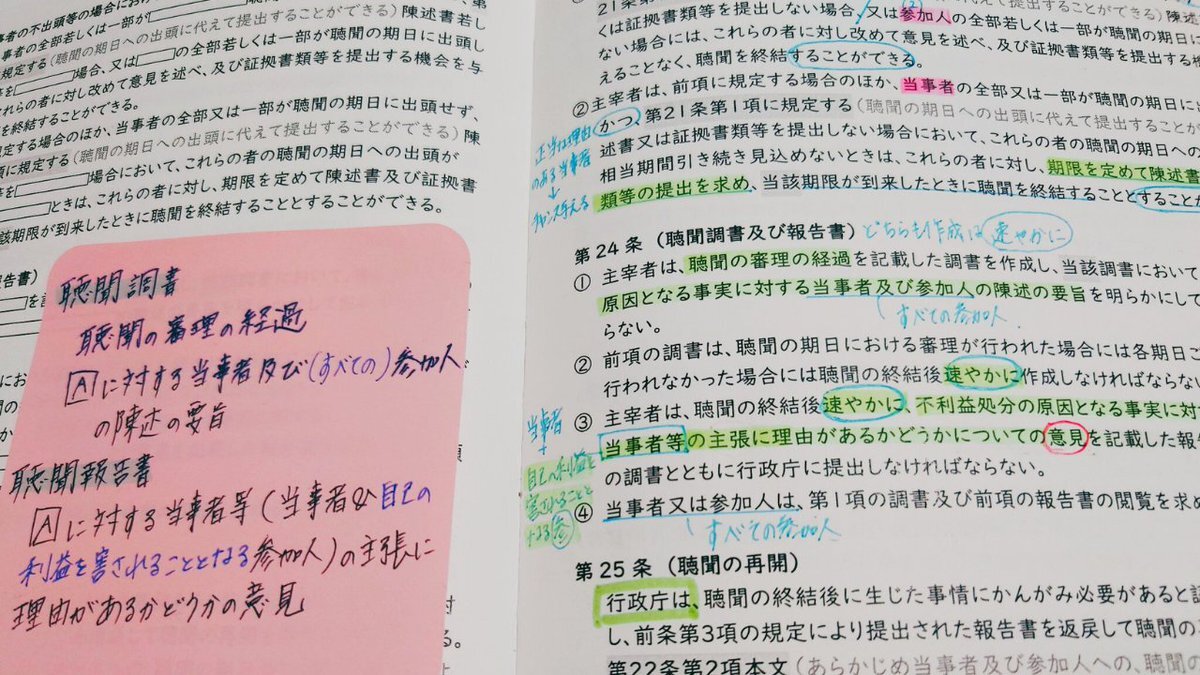 事者の不出頭等の場合にお
事者の全部若しくは一部が
規定する(聴聞の期日への出頭に代えて提出することができる)陳述書若し
場合、又は の全部若しくは一部が聴聞の期日に出頭し
れらの者に対し改めて意見を述べ、及び証拠書類等を提出する機会を与
を終結することができる。
定する場合のほか、当事者の全部又は一部が聴聞の期日に出頭せず、
項に規定する(聴聞の期日への出頭に代えて提出することができる)陳
場合において、これらの者の聴聞の期日への出頭が
ときは、これらの者に対し、期限を定めて陳述書及び証拠書
該期限が到来したときに聴聞を終結することとすることができる。
報告書)
聴聞調書
聴聞の審理の経過
Aに対する当事者及び(すべての)参加人
の陳述の要旨
聴聞報告書
Aに対する当事者等(当事者&自己の
利益を害されることとなる参加人)の主張に
理由があるかどうかの意見
くは証拠書類等を提出しない場合、又は参加人の全部若しくは一部が聴聞の期日に
ない場合には、これらの者に対し改めて意見を述べ、及び証拠書類等を提出する機
えることなく、聴聞を終結することができる。
②主宰者は、前項に規定する場合のほか、当事者の全部又は一部が聴聞の期日に
かつ、第21条第1項に規定する(聴聞の期日への出頭に代えて提出することが
述書又は証拠書類等を提出しない場合において、これらの者の聴聞の期日への出
相当期間引き続き見込めないときは、これらの者に対し、期限を定めて陳述書
類等の提出を求め、当該期限が到来したときに聴聞を終結することとすることが
正当な理由
のある当事者
↓
チャンス与える
第24条(聴聞調書及び報告書) どちらも作成は速やかに
① 主宰者は、聴聞の審理の経過を記載した調書を作成し、当該調書において
原因となる事実に対する当事者及び参加人の陳述の要旨を明らかにして
らない。
すべての参加人
② 前項の調書は、聴聞の期日における審理が行われた場合には各期日ご
行われなかった場合には聴聞の終結後速やかに作成しなければならない
③ 主宰者は、聴聞の終結後速やかに、不利益処分の原因となる事実に対
当事者等の主張に理由があるかどうかについての意見を記載した報
の調書とともに行政庁に提出しなければならない。
④ 当事者又は参加人は、第1項の調書及び前項の報告書の閲覧を求め
すべての参加人
当事者
自己の利益を
害されることと
なる参
第25条(聴聞の再開)
行政庁は、聴聞の終結後に生じた事情にかんがみ必要があると認
し、前条第3項の規定により提出された報告書を返戻して聴聞の
第22条第2項本文(あらかじめ当事者及び参加人への、聴聞の